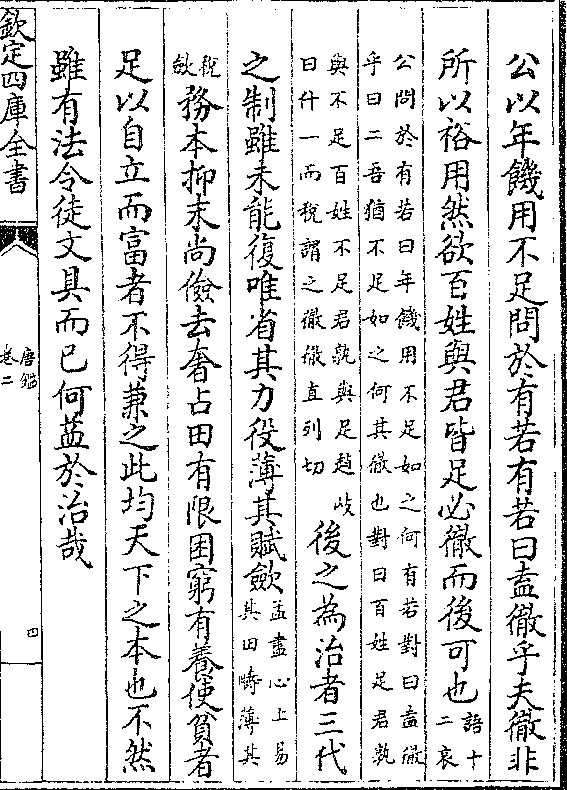 公以年饑用不足問於有若有若曰盍徹乎夫徹非
所以裕用然欲百姓與君皆足必徹而後可也
語十
二哀
公問於有若曰年饑用不足如之何有若對曰盍徹
乎曰二吾猶不足如之何其徹也對曰百姓足君孰
與不足百姓不足君孰與足趙岐
曰什一而稅謂之徹徹直列切
後之為治者三代
之制雖未能復唯省其力役薄其賦斂
孟盡心上易
其田疇薄其
稅
斂
務本抑末尚儉去奢占田有限困窮有養使貧者
足以自立而富者不得兼之此均天下之本也不然
雖有法令徒文具而已何益於治哉
欽定四庫全書
唐鑑
卷二
四